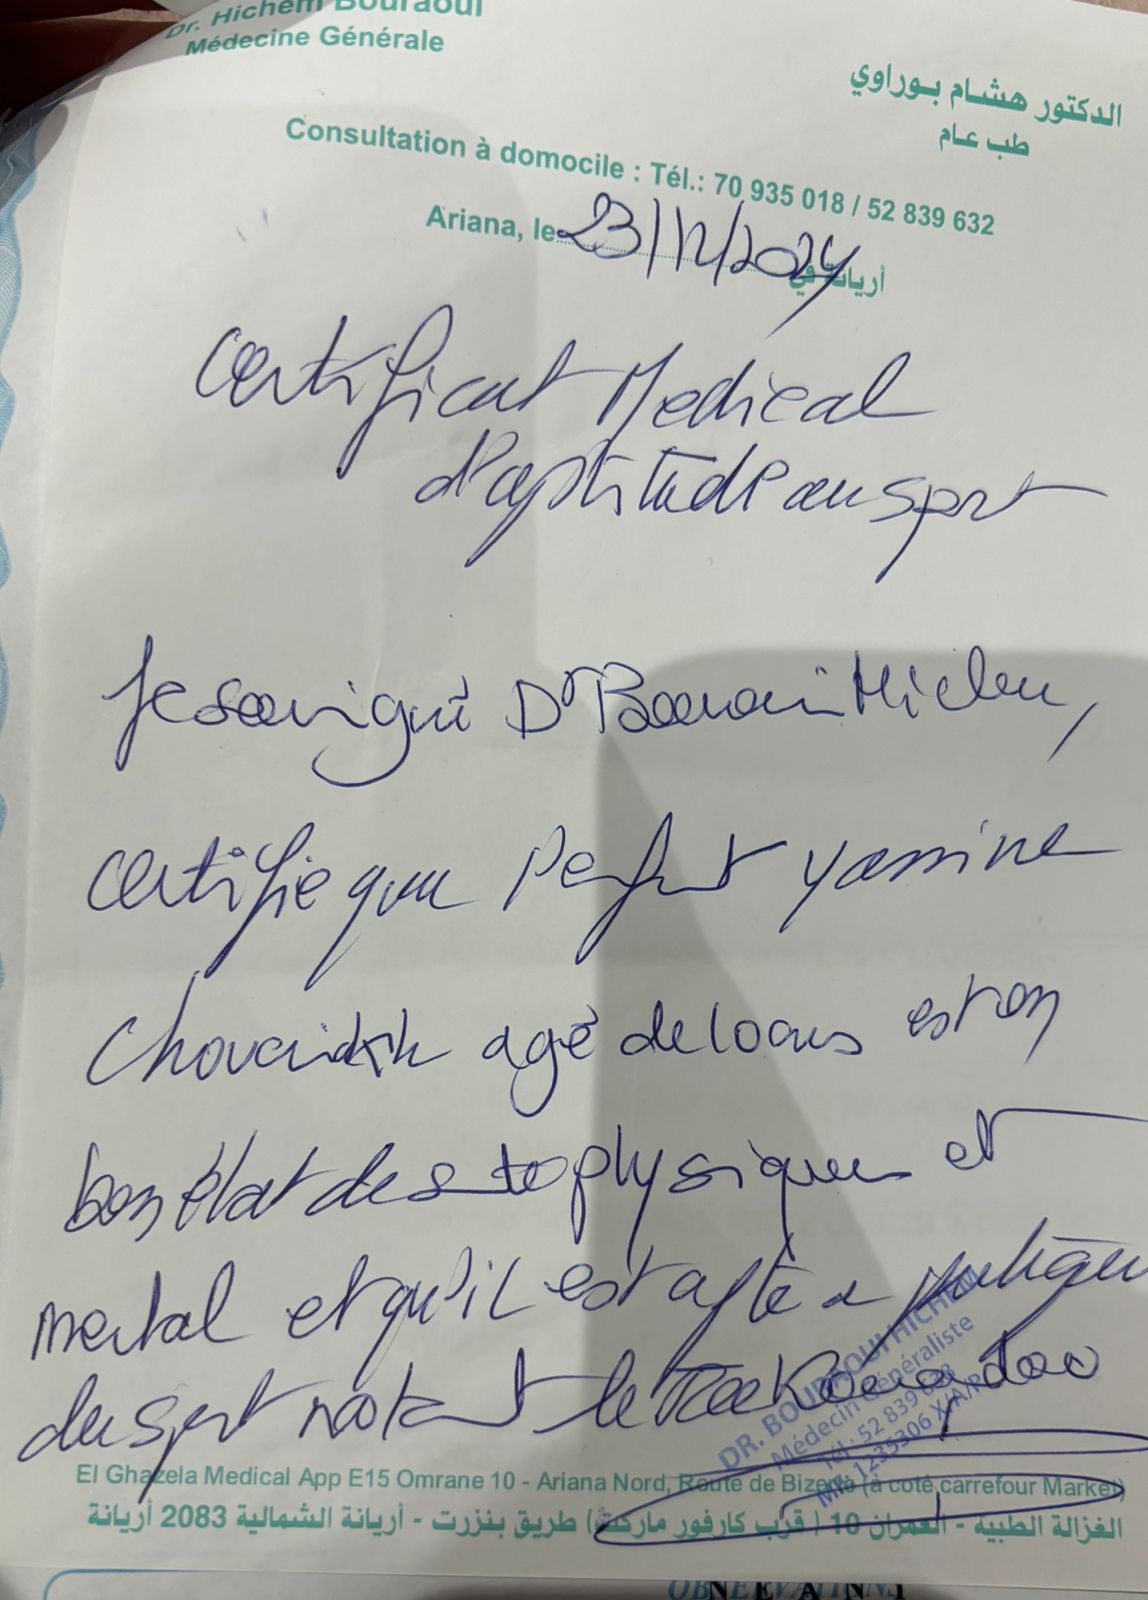 Dr. Hichem Bouraoui
Médecine Générale
الدكتور هشام بوراوي
طب عام
Consultation à domocile : Tél.: 70 935 018 / 52 839 632
Ariana, le 23/12/2024 أريانة في
Certificat Medical
d'aptitude au sport
Je soussigné Dr Bouraoui Hichem,
certifie que l'enfant Yassine
Chouaidkh agé de 10 ans est en
bon état de santé physique et
mental et qu'il est apte a pratiquer
du sport notamt le Taekowndoo
DR. BOURAOUI HICHEM
Médecin Généraliste
Tél : 52 839 628
MF: 1235306 X/A/P
El Ghazela Medical App E15 Omrane 10 - Ariana Nord, Route de Bizerte (à coté carrefour Market)
الغزالة الطبية - العمران 10 (قرب كارفور ماركت) طريق بنزرت - أريانة الشمالية 2083 أريانة